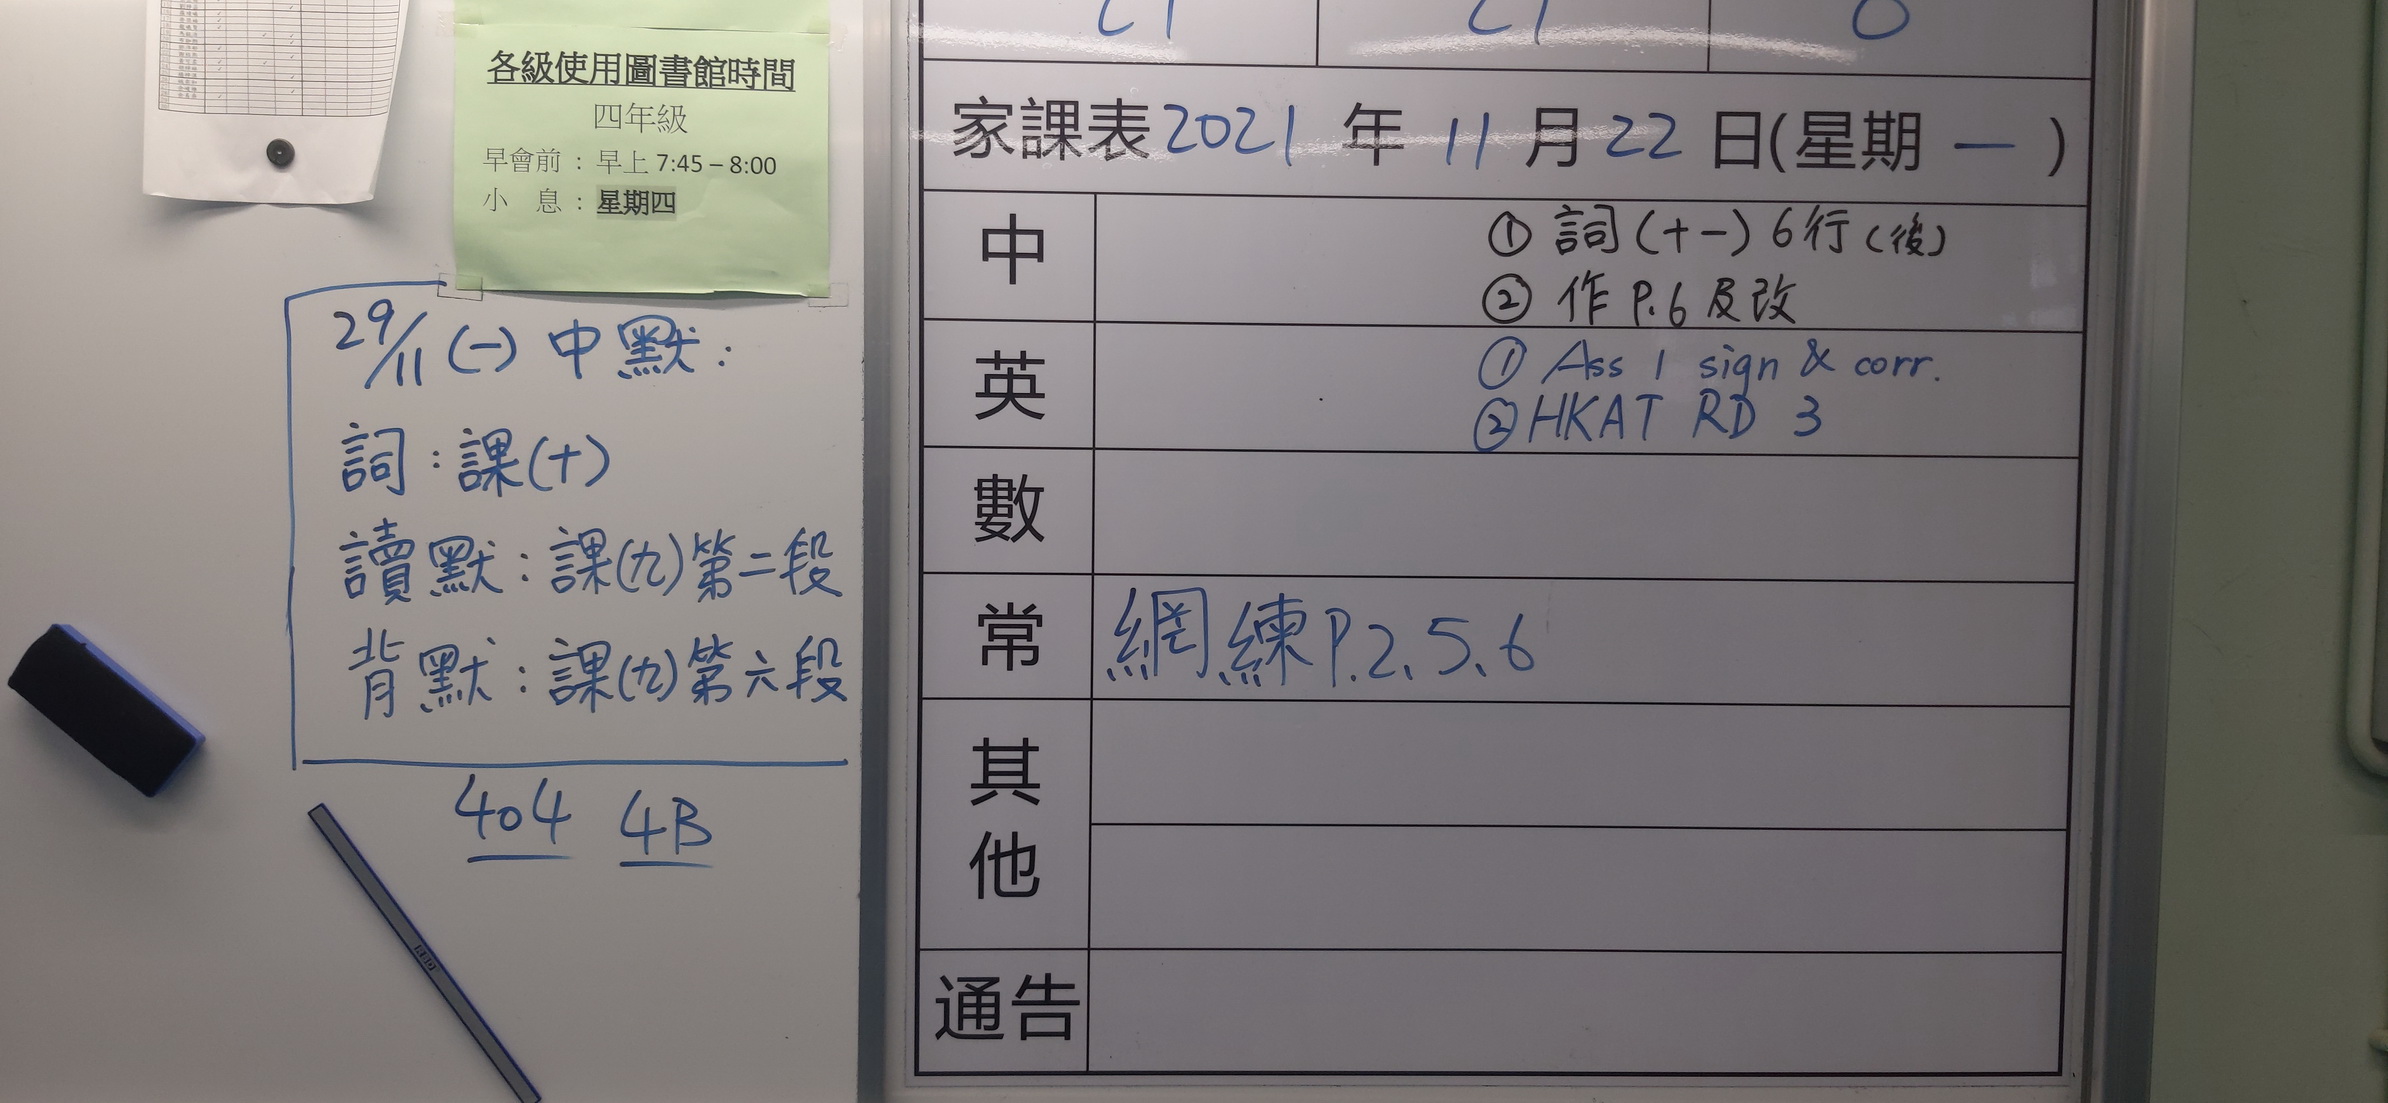 各級使用圖書館時間
四年級
早會前 : 早上 7:45 – 8:00
小 息 : 星期四
29/11 (一) 中默:
詞:課(十)
讀默:課(九)第二段
背默:課(九)第六段
404 4B
21 21 0
家課表2021年11月22日(星期一)
中
① 詞(十一)6行(後)
② 作P.6及改
英
① Ass 1 sign & corr.
② HKAT RD 3
數
常 網練P.2、5、6
其他
通告